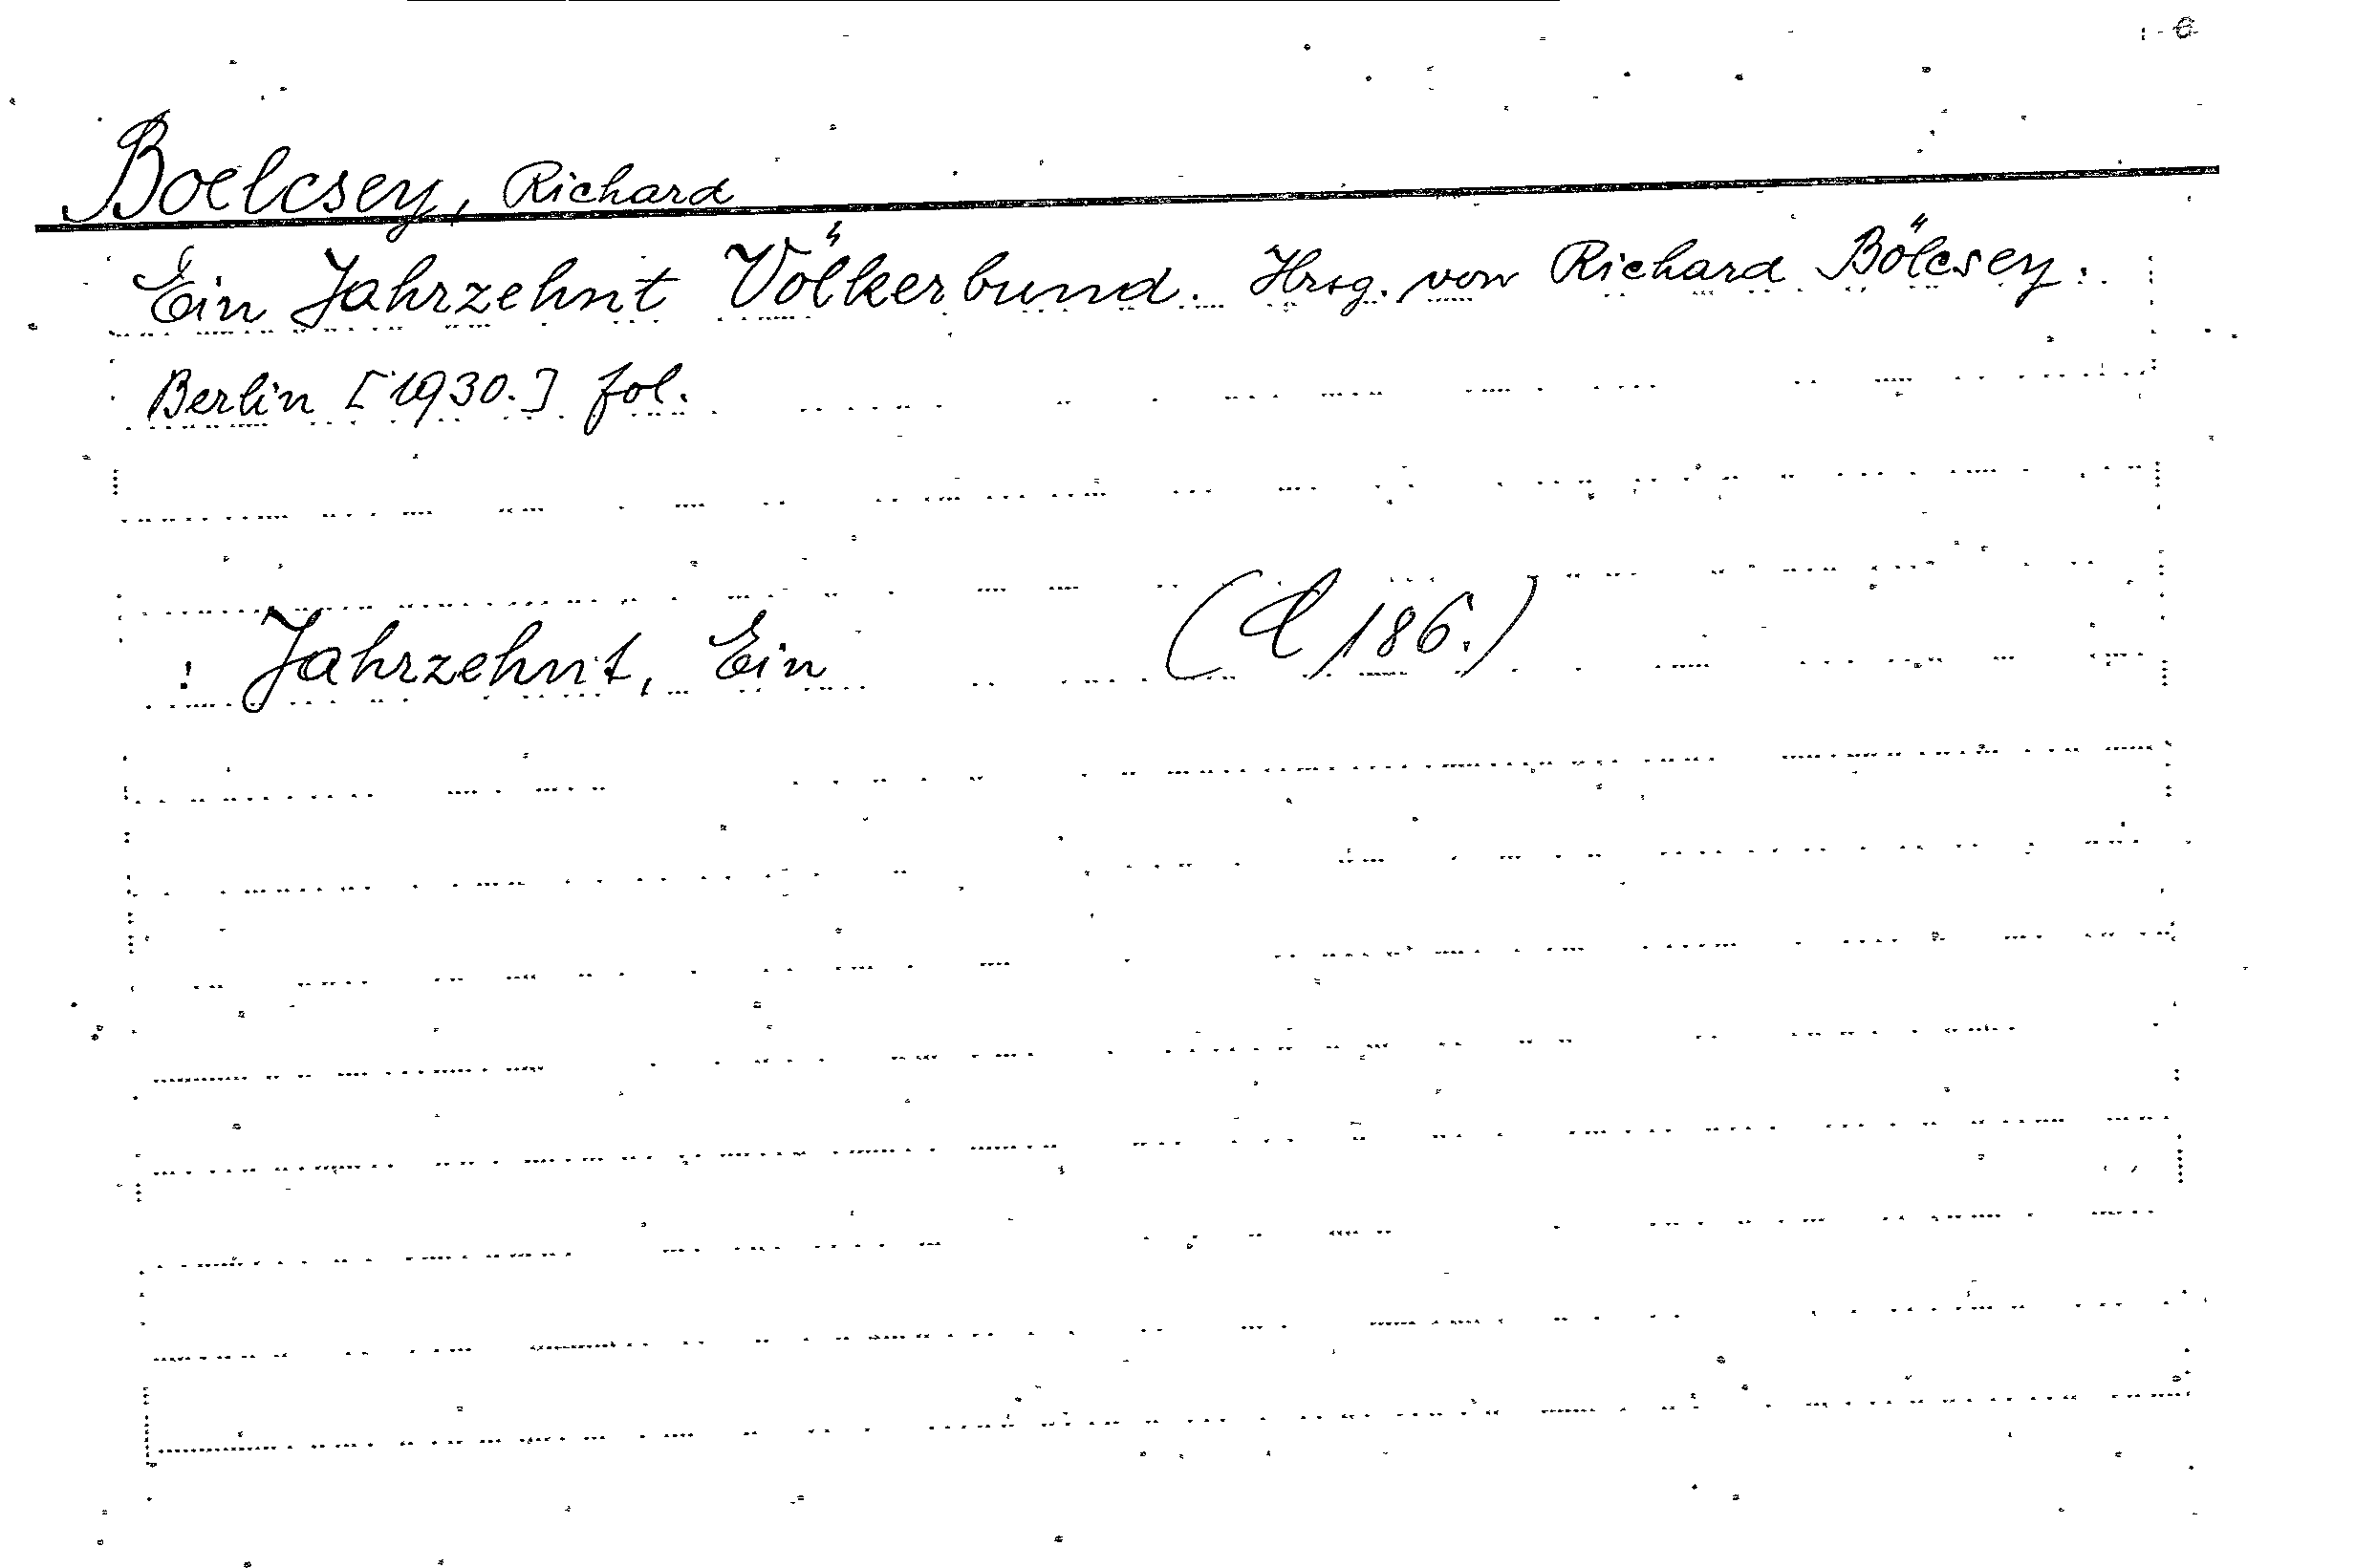 Boelcsey, Richard
Ein Jahrzehnt Völkerbund. Hrsg. von Richard Bölcsey.
Berlin [1930.] fol.
! Jahrzehnt, Ein (186.)